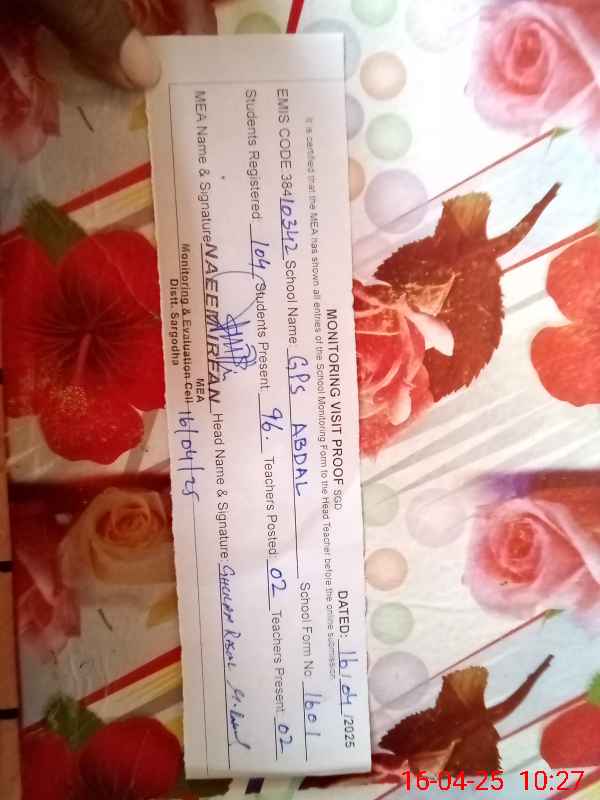 MONITORING VISIT PROOF SGD
DATED: 16/04/2025
It is certified that the MEA has shown all entries of the School Monitoring Form to the Head Teacher before the online submission
EMIS CODE 38410342 School Name: GPS ABDAL School Form No. 1601
Students Registered: 104 Students Present: 96. Teachers Posted: 02 Teachers Present: 02
MEA Name & Signature NAEEM IRFAN Head Name & Signature: GHULAM RASUL
MEA
Monitoring & Evaluation Cell
Distt. Sargodha
16/04/25
16-04-25 10:27